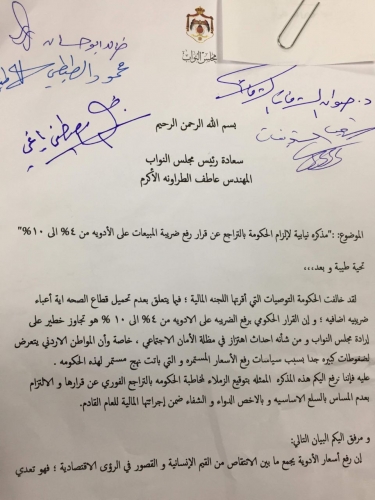 خالد ابو حسان
محمود الطيطي
مجلس النواب
مصطفى ياغي
بسم الله الرحمن الرحيم
سعادة رئيس مجلس النواب
المهندس عاطف الطراونه الأكرم
الموضوع: :"مذكره نيابية لإلزام الحكومة بالتراجع عن قرار رفع ضريبة المبيعات على الأدويه من ٤% الى ١٠%"
تحية طيبة و بعد،،،
لقد خالفت الحكومة التوصيات التي أقرتها اللجنه المالية ؛ فيما يتعلق بعدم تحميل قطاع الصحه اية أعباء
ضريبيه اضافيه ؛ و إن القرار الحكومي برفع الضريبه على الادويه من ٤% الى ١٠ % هو تجاوز خطير على
إرادة مجلس النواب و من شأنه احداث اهتزاز في مظلة الأمان الاجتماعي ، خاصة وأن المواطن الاردني يتعرض
لضغوطات كبيره جدا بسبب سياسات رفع الأسعار المستمره و التي باتت نهج مستمر لهذه الحكومه .
عليه فإننا نرفع اليكم هذه المذكره الممثله بتوقيع الزملاء لمخاطبة الحكومه بالتراجع الفوري عن قرارها و الالتزام
بعدم المساس بالسلع الاساسيه و بالاخص الدواء و الشفاء ضمن إجراتها المالية للعام القادم.
و مرفق اليكم البيان التالي:
إن رفع أسعار الأدوية يجمع ما بين الانتقاص من القيم الإنسانية و القصور في الرؤى الاقتصادية ؛ فهو تعدي